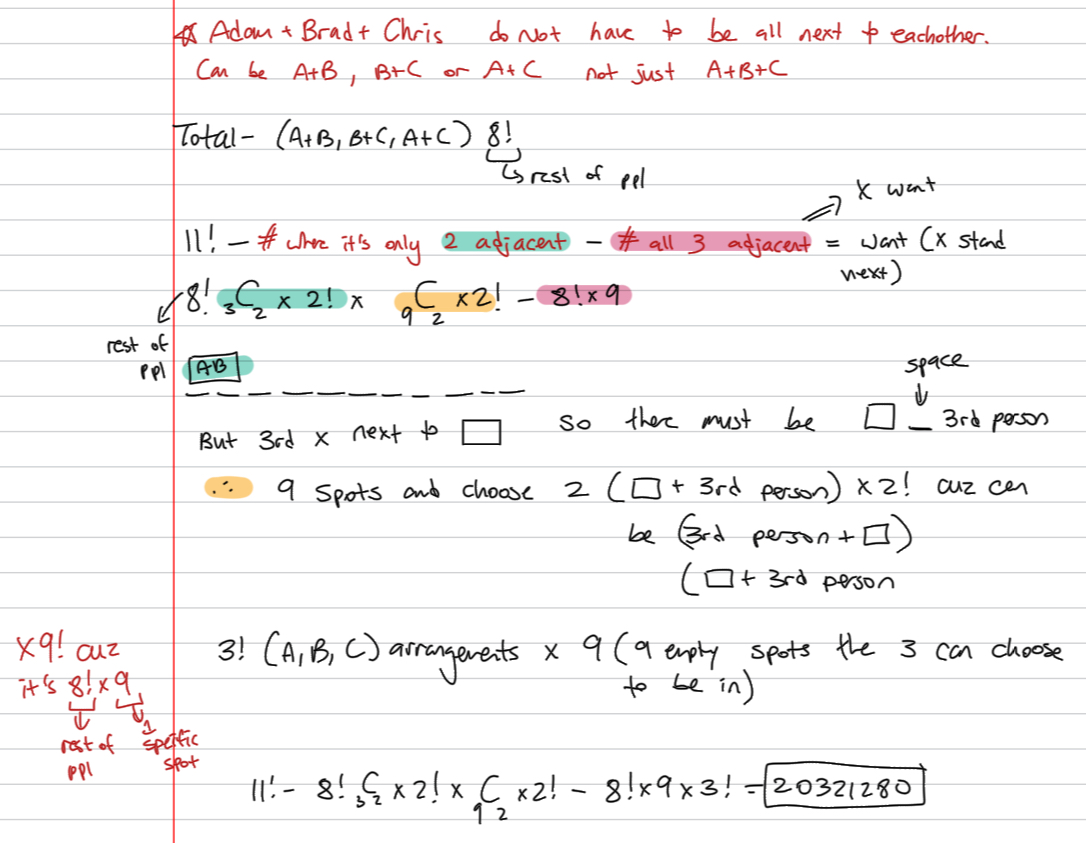 * Adam + Brad + Chris do Not have to be all next to eachother.
Can be A+B, B+C or A+C not just A+B+C
Total - (A+B, B+C, A+C) 8!
↳ rest of ppl
x want
11! - # where it's only 2 adjacent - # all 3 adjacent = want (x stand next)
8! ₃C₂ x 2! x ₉C₂ x2! - 8!x9
rest of ppl
AB
space
But 3rd x next to □ so there must be □ _ 3rd person
∴ 9 spots and choose 2 (□ + 3rd person) x2! cuz can
be (3rd person + □)
(□ + 3rd person
x9! cuz
it's 8!x9
rest of ppl
1 specific spot
3! (A, B, C) arrangements x 9 (9 empty spots the 3 can choose
to be in)
11! - 8! ₃C₂ x 2! x ₉C₂ x2! - 8!x9x3! = 20321280